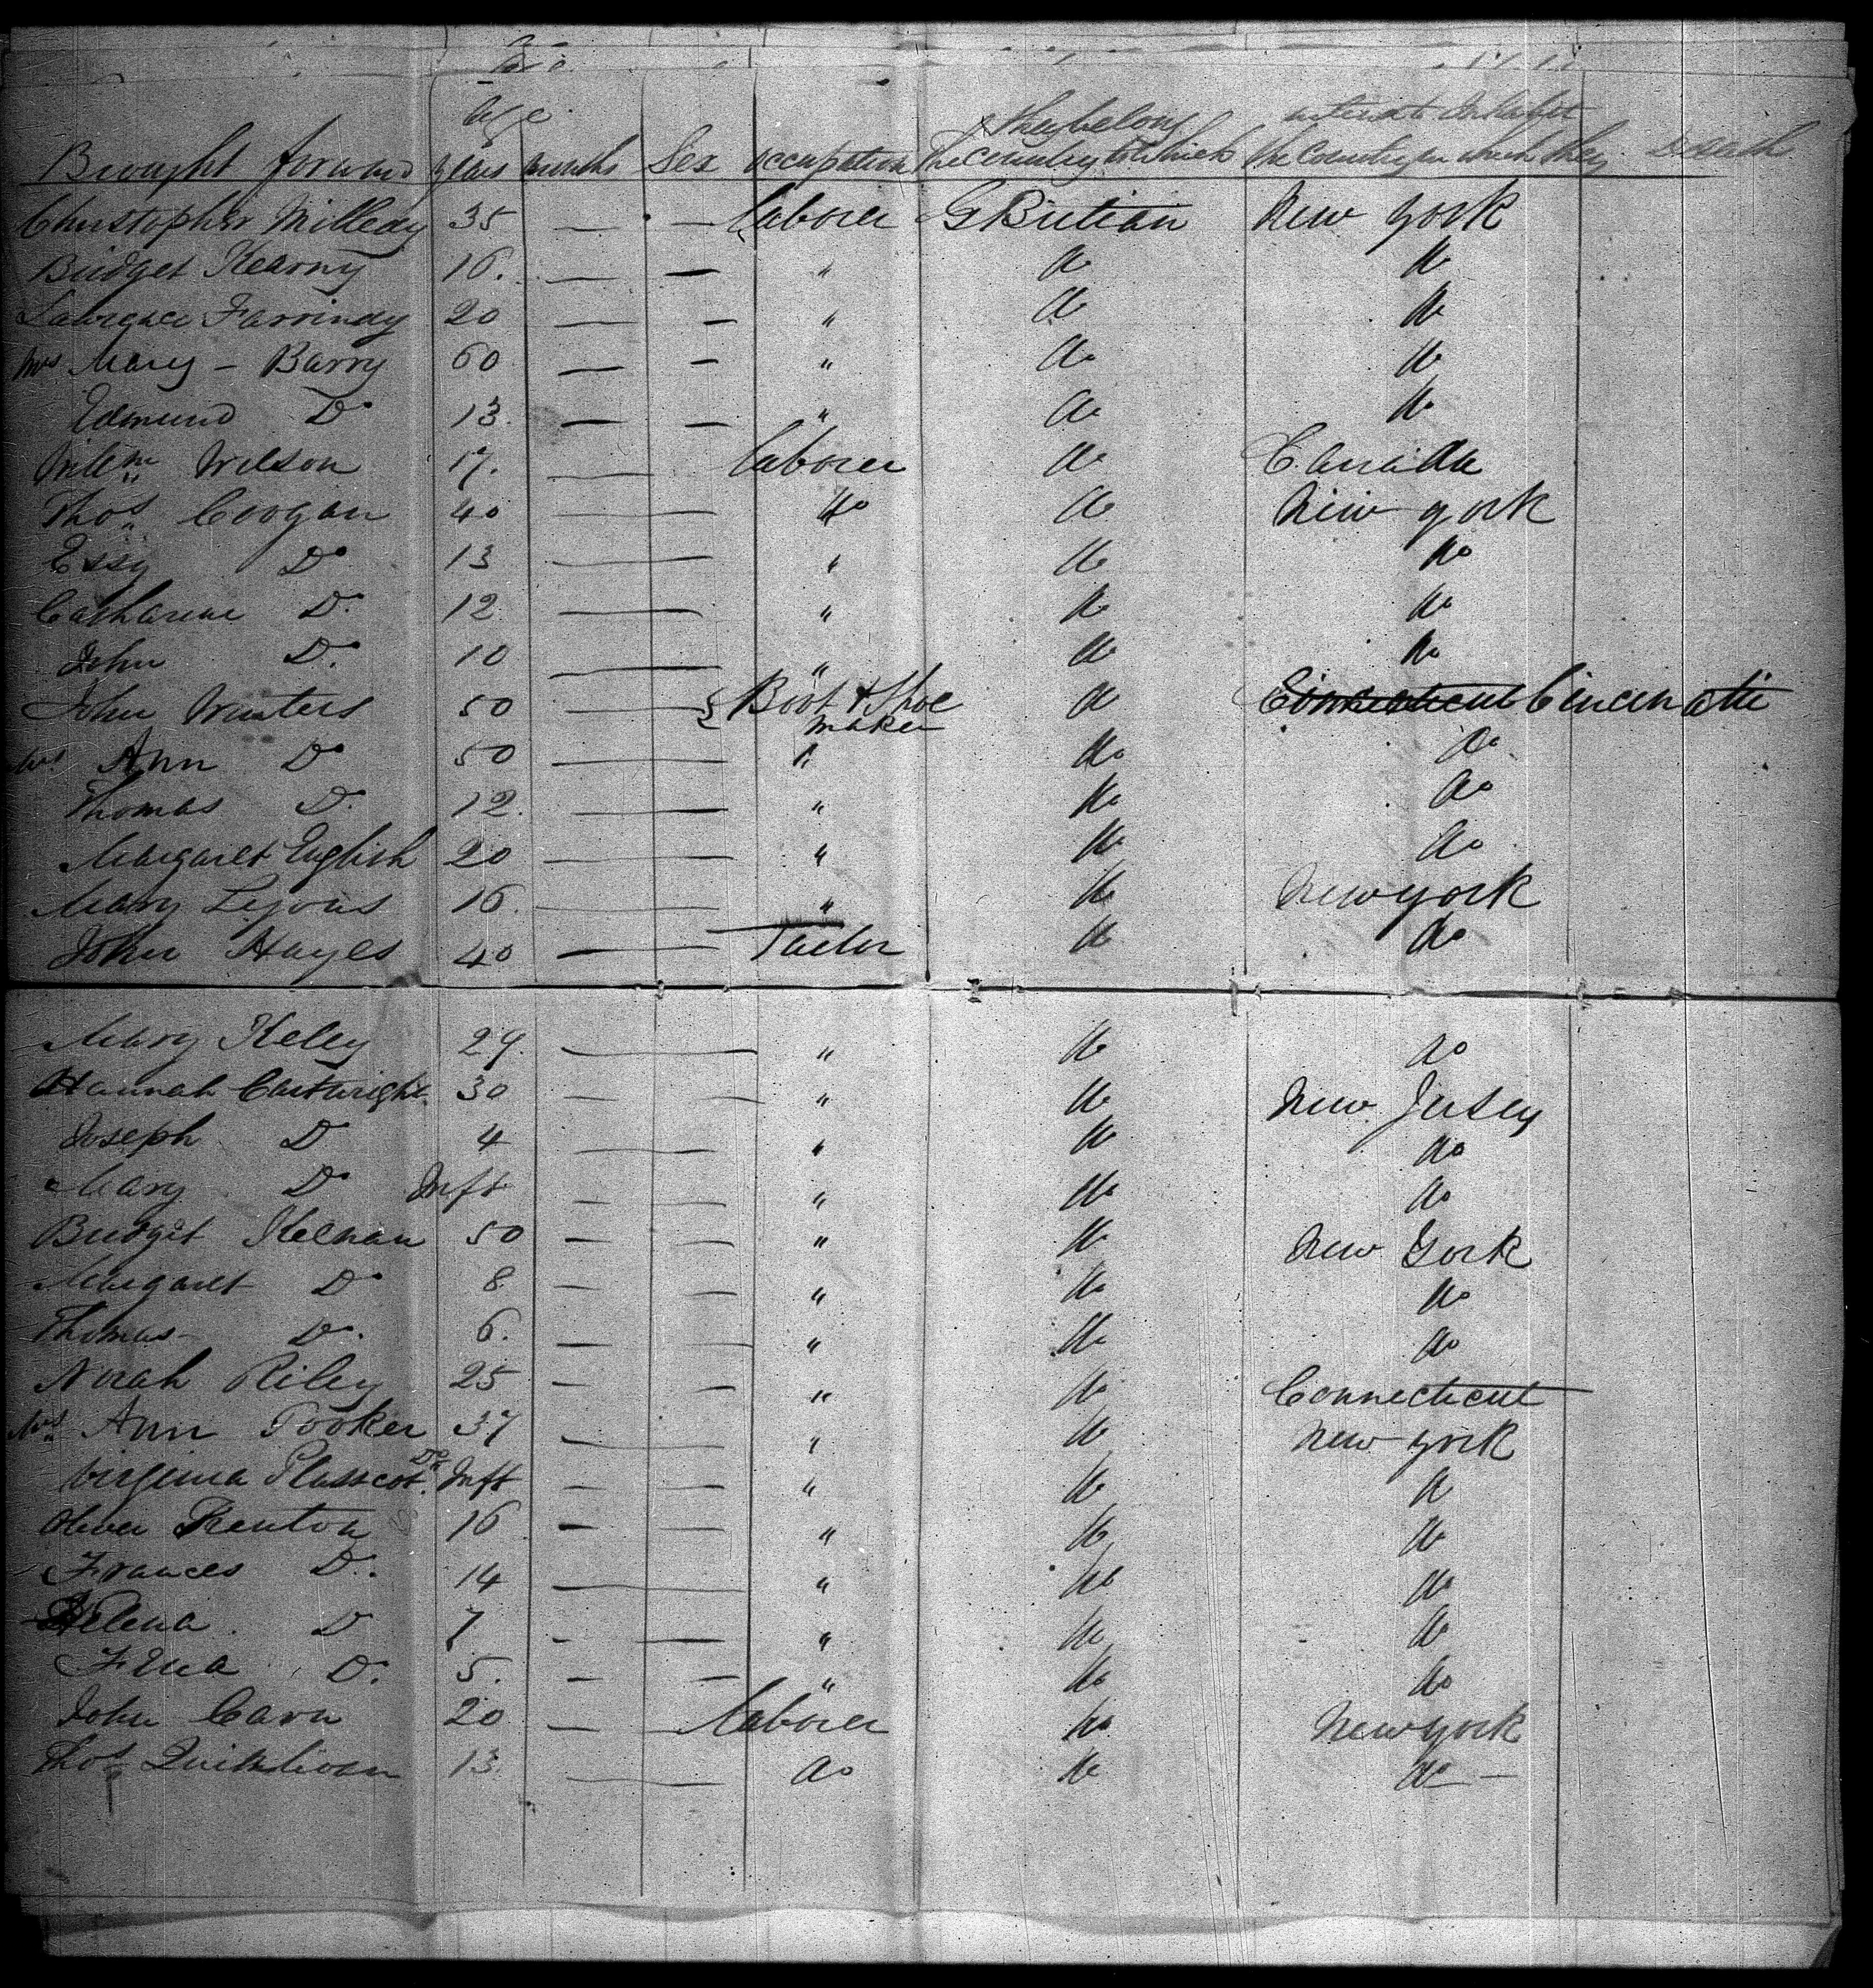 Age
they belong intend to Inhabit
Brought forward years months Sex occupation The Country to which the Country in which they Death
Christopher Milleay 35 — — Laborer G Britian New York
Bridget Kearny 16. — — " do do
Lawrence Farrindy 20 — — " do do
Mrs Mary — Barry 60 — — " do do
Edmund Do 13. — — " do do
Willm Wilson 17. — Laborer do Canada
Thos Coogan 40 — — do do New York
Essy Do 13 — — " do do
Catharine Do 12 — — " do do
John Do 10 — — " do do
John Winters 50 — — { Boot & Shoe do Connecticut Cincinatti
maker
Mrs Ann Do 50 — — " do do
Thomas Do 12. — — " do do
Margaret English 20 — — " do do
Mary Lyons 16. — — " do New york
John Hayes 40 — — Tailor do do
Mary Keley 29. — — " do do
Hannah Cartwright 30 — — " do New Jersey
Joseph Do 4 — — " do do
Mary Do Inft — — " do do
Bridget Keenan 50 — — " do New York
Margaret Do 8 — — " do do
Thomas — Do. 6. — — " do do
Norah Riley 25 — — " do Connecticut
Mrs Ann Tooker 37 — — " do New york
Virginia Plasscot Do Inft — — " do do
Oliver Renton 16 — — " do do
Frances Do. 14 — — " do do
Helena Do 7 — — " do do
Do. 5. — — " do do
John Carn 20 — — Laborer do New york
Thos Quinlivan 13 — — do do do —